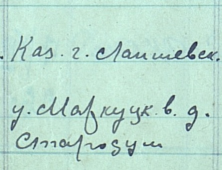 Каз. г. Лаишевск.
у. Маркуцк. в. д.
Стародум